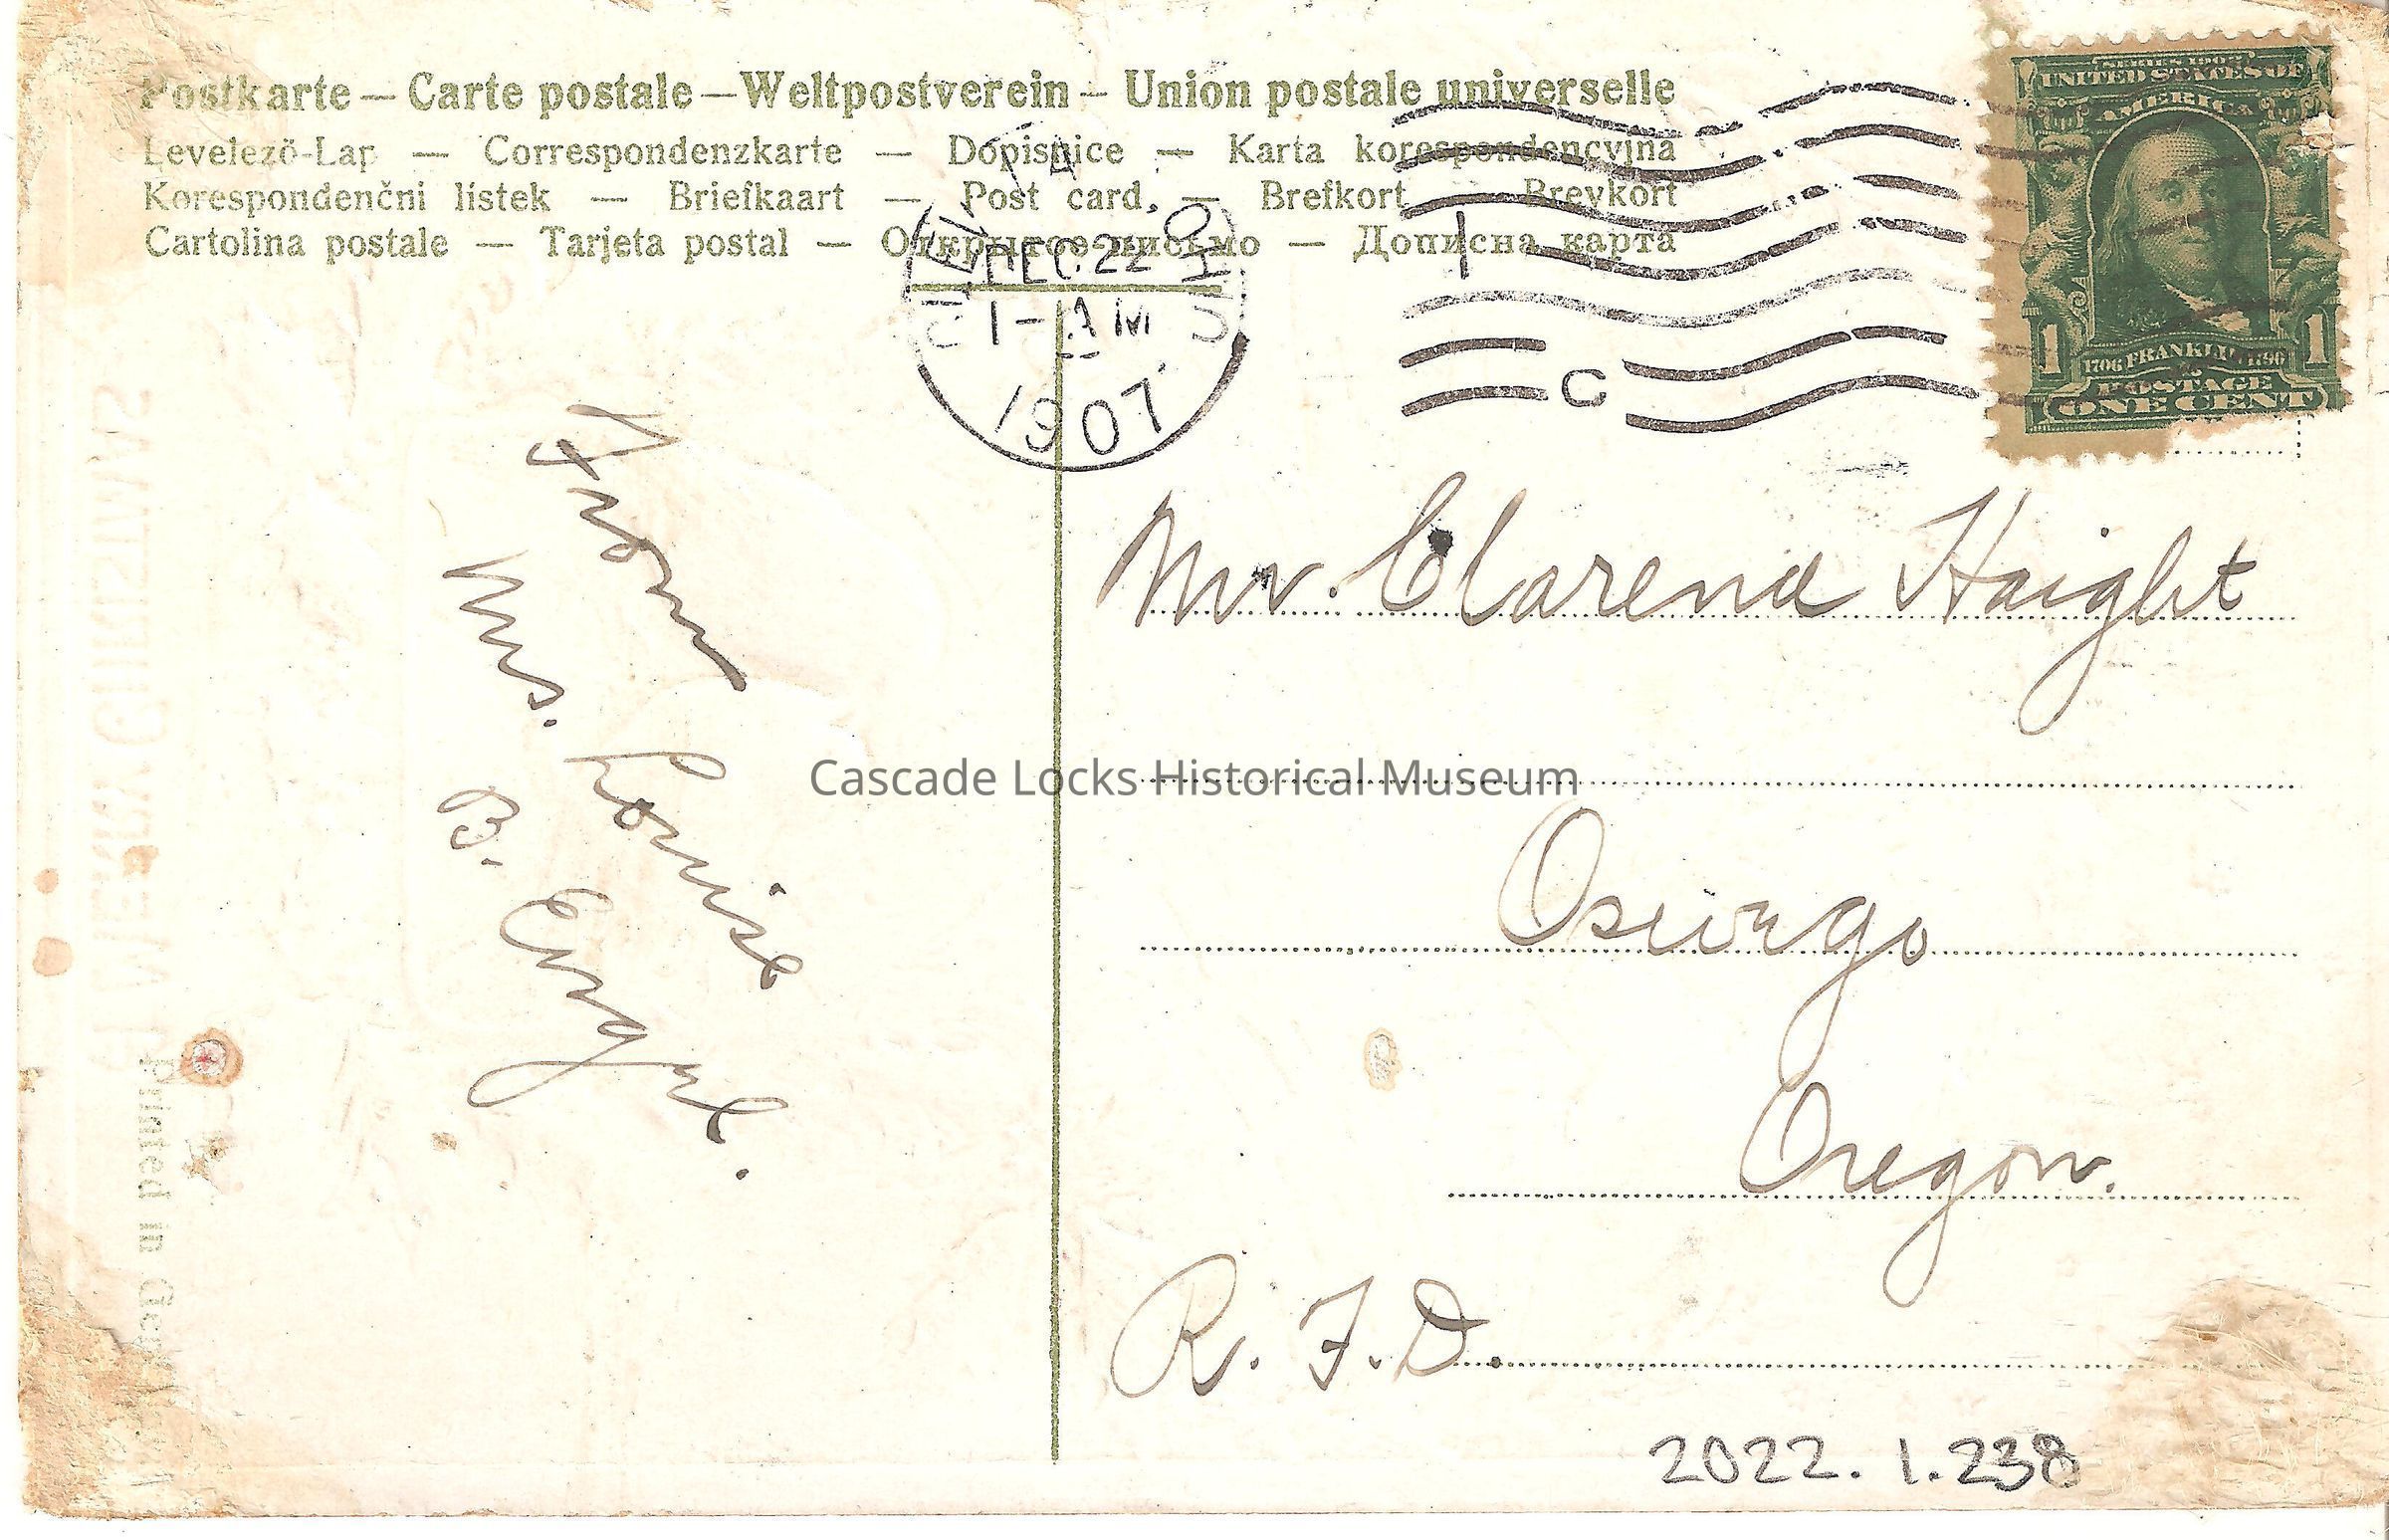 Postkarte — Carte postale — Weltpostverein — Union postale universelle
Levelező-Lap — Correspondenzkarte — Dopisnice — Karta korespondencyjna
Korespondenčni listek — Briefkaart — Post card, — Brefkort — Brevkort
Cartolina postale — Tarjeta postal — Открытое письмо — Дописна карта
DEC. 22
1 - AM
1907
OHIO
1
C
SERIES 1902
UNITED STATES OF
AMERICA
1 1
1706 FRANKLIN 1790
POSTAGE
ONE CENT
From
Mrs. Louise
B. Engel.
Mr. Clarence Haight
Oswego
Oregon.
R. F. D.
MERRY CHRISTMAS
Printed in
Cascade Locks Historical Museum
2022.1.238